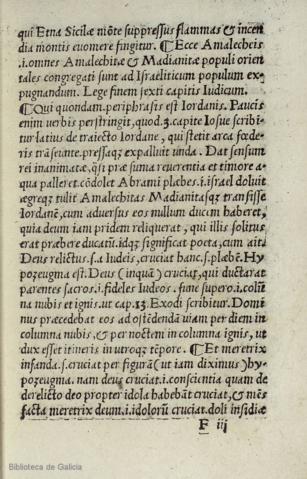 qui Etna Sicilæ mõte suppressus flammas & incen
dia montis euomere fingitur. ¶ Ecce Amalecheis
.i.omnes Amalechitæ & Madianitæ populi orien
tales congregati sunt ad Israeliticum populum ex-
pugnandum. Lege finem sexti capitis Iudicum.
¶ Qui quondam. periphrasis est Iordanis. Paucis
enim verbis perstringit, quod.3.capite Iosue scribi-
tur latius de traiecto Iordane, qui stetit arca fœde-
ris trãseunte.pressaqʒ expalluit unda. Dat sensum
rei inanimatæ, q̃si præ suma reuerentia et timore a-
qua palleret. cõdolet Abrami plæbes .i. israel doluit
ægreqʒ tulit Amalechitas Madianitasqʒ transisse
Iordanẽ, cum aduersus eos nullum ducem haberet,
quia deum iam pridem reliquerat, qui illis solitus
erat præbere ducatũ.idqʒ significat poeta, cum ait.
Deus relictus .s.a Iudeis, cruciat hanc .s.plæbẽ. Hy
pozeugma est. Deus (inquã) cruciat, qui ductarat
parentes sacros .i.fideles Iudeos .fune supero.i.colũ
na nubis et ignis.ut cap.13.Exodi scribitur. Domi
nus præcedebat eos ad ostẽdendã uiam per diem in
columna nubis, & per noctem in columna ignis, ut
dux esset itineris in utroqʒ tẽpore. ¶ Et meretrix
infanda.s.cruciat per figurã (ut iam diximus) hy-
pozeugma. nam deus cruciat.i.conscientia quam de
derelicto deo propter idola habebãt cruciat, & mẽs
facta meretrix deum.i.idolorũ cruciat.doli insidiæ
F iij
Biblioteca de Galicia